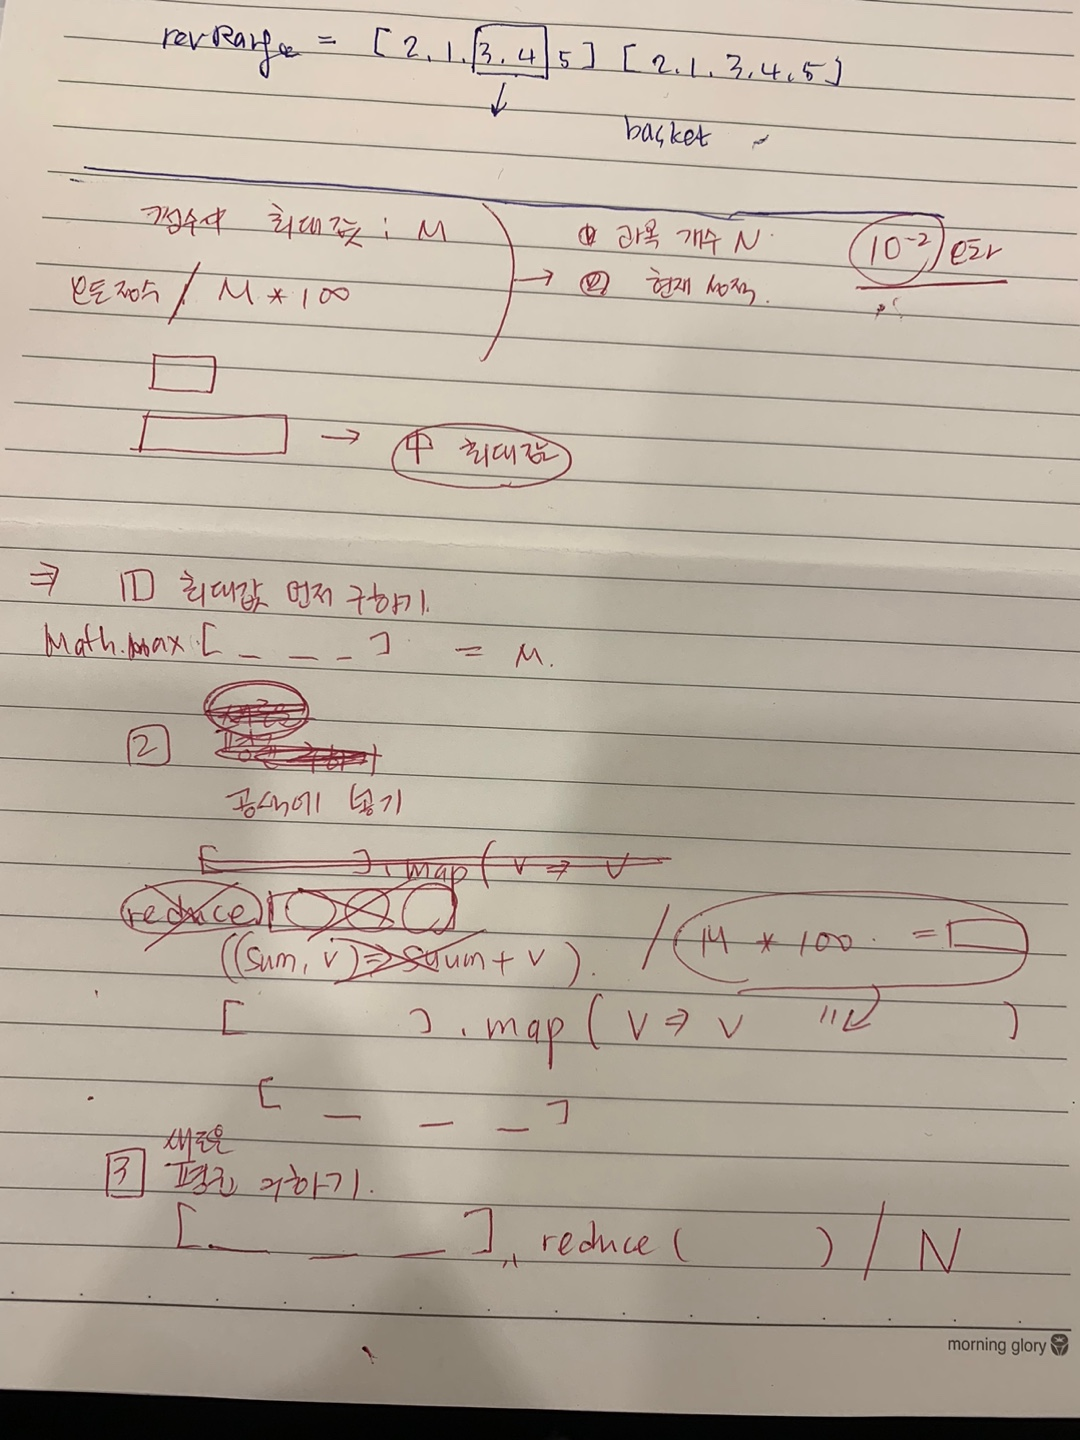 revRange = [2.1.3.4.5] [2.1.3.4.5]
basket
점수中 최대값 : M
모든점수 / M * 100
① 과목 개수 N.
② 현재 성적.
10⁻² 오차
中 최대값
⇒ 1 최대값 먼저 구하기.
Math.max.[ _ _ _ ] = M.
2
공식에 넣기
[ ].map( v ⇒ v
reduce
((sum, v) ⇒ sum + v). / M * 100. =
[ ].map( v ⇒ v 〃 )
[ _ _ _ ]
새로운
3 평균 구하기.
[ _ _ _ ].reduce( ) / N
morning glory